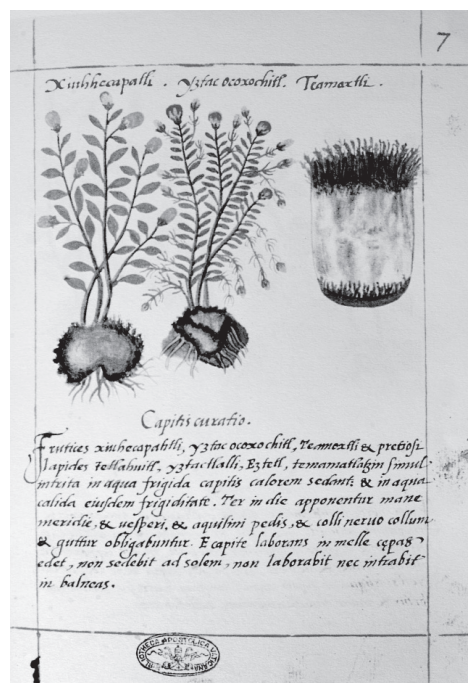 7
Xiuhhecapalli . Yztac ocoxochitl. Teamoxtli .
Capitis curatio.
Frutices xiuhecapahtli, yztac ocoxochitl, teamoxtli & pretiosi
lapides tetlahuitl, yztactlalli, Eztetl, temamatlatzin simul
intrita in aqua frigida capitis calorem sedant: & in aqua
calida eiusdem frigiditate. Ter in die apponentur mane
meridie, & uesperi, & aquilini pedis, & colli neruo collum
& guttur obligabuntur. E capite laborans in melle cepas
edet, non sedebit ad solem, non laborabit nec intrabit
in balneas.
BIBLIOTHECA APOSTOLICA VATICANA